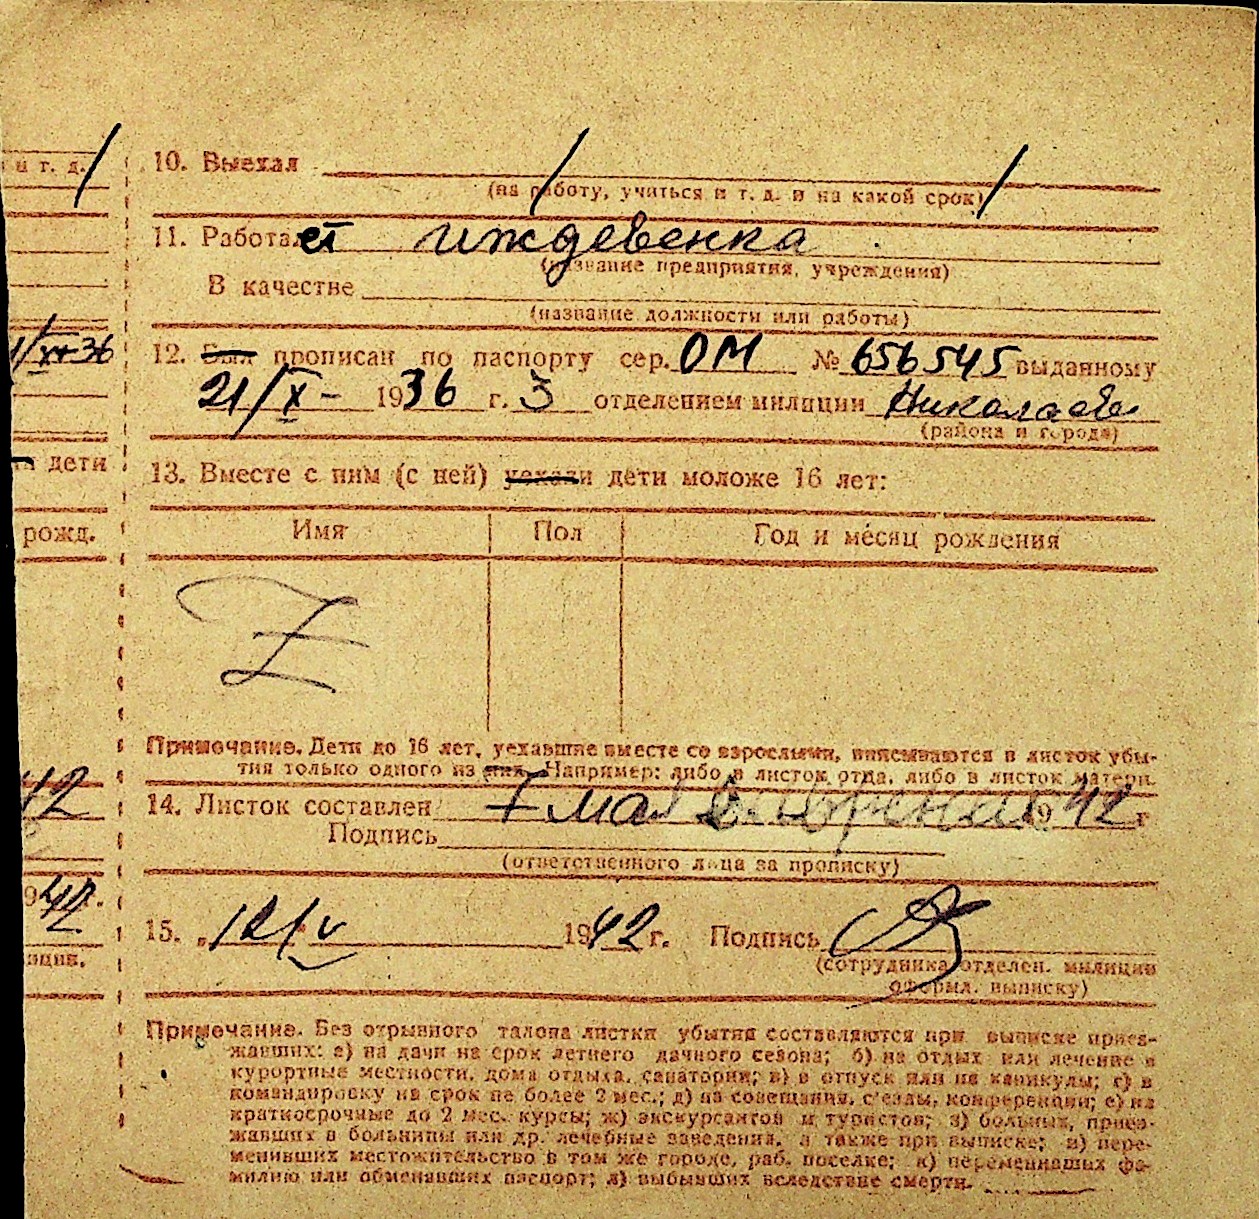 и т. д.
10. Выехал
(на работу, учиться и т. д. и на какой срок)
11. Работает иждевенка
(название предприятия, учреждения)
В качестве
(название должности или работы)
12. Был прописан по паспорту сер. ОМ № 656545 выданному
21/X- 1936 г. 3 отделением милиции Николаев
(района и города)
дети
13. Вместе с ним (с ней) уехали дети моложе 16 лет:
рожд.
Имя Пол Год и месяц рождения
Z
Примечание. Дети до 16 лет, уехавшие вместе со взрослыми, вписываются в листок убы-
тия только одного из них. Например: либо в листок отца, либо в листок матери.
42
14. Листок составлен 7 мая 1942 г
Подпись
(ответственного лица за прописку)
942 г.
15. „12/V 1942 г. Подпись
(сотрудника отделен. милиции
оформл. выписку)
Примечание. Без отрывного талона листки убытия составляются при выписке приез-
жавших: а) на дачи на срок летнего дачного сезона; б) на отдых или лечение в
курортные местности, дома отдыха, санатории; в) в отпуск или на каникулы; г) в
командировку на срок не более 2 мес.; д) на совещания, с'езды, конференции; е) на
краткосрочные до 2 мес. курсы; ж) экскурсантов и туристов; з) больных, приез-
жавших в больницы или др. лечебные заведения, а также при выписке; и) пере-
менивших местожительство в том же городе, раб. поселке; к) переменивших фа-
милию или обменявших паспорт; л) выбывших вследствие смерти.